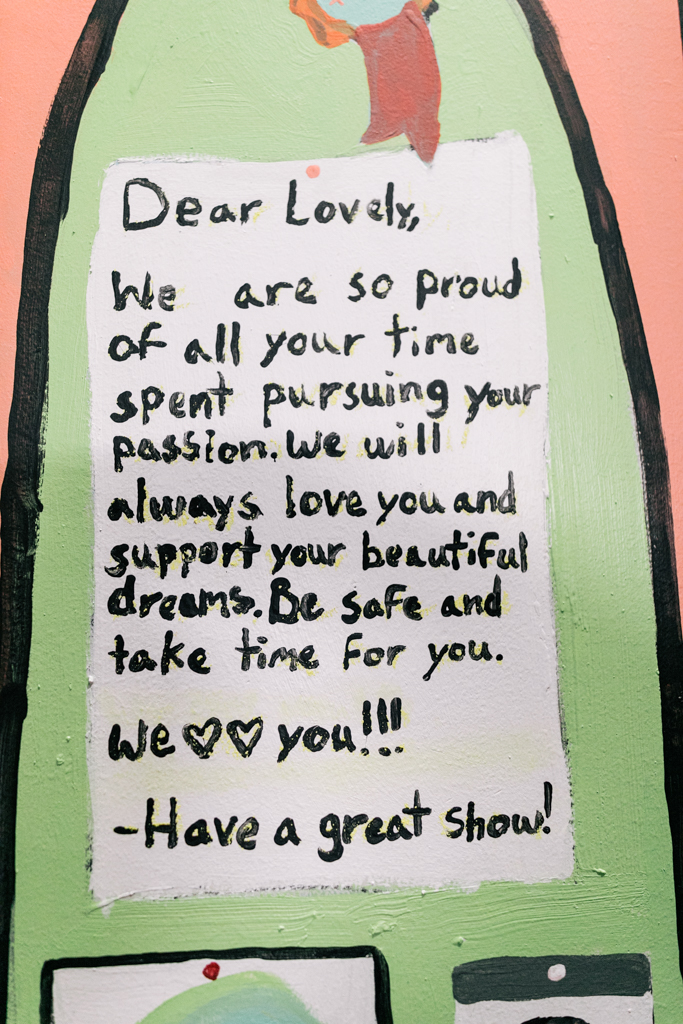 Dear Lovely,
We are so proud
of all your time
spent pursuing your
passion. We will
always love you and
support your beautiful
dreams. Be safe and
take time for you.
We ♡♡ you!!!
-Have a great show!